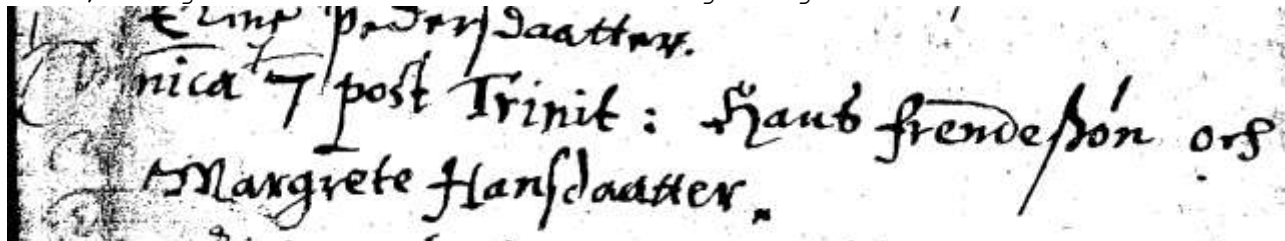 Pedersdaatter.
Dnica 7 post Trinit: Hans frendeßøn och
Margrete Hansdaatter.